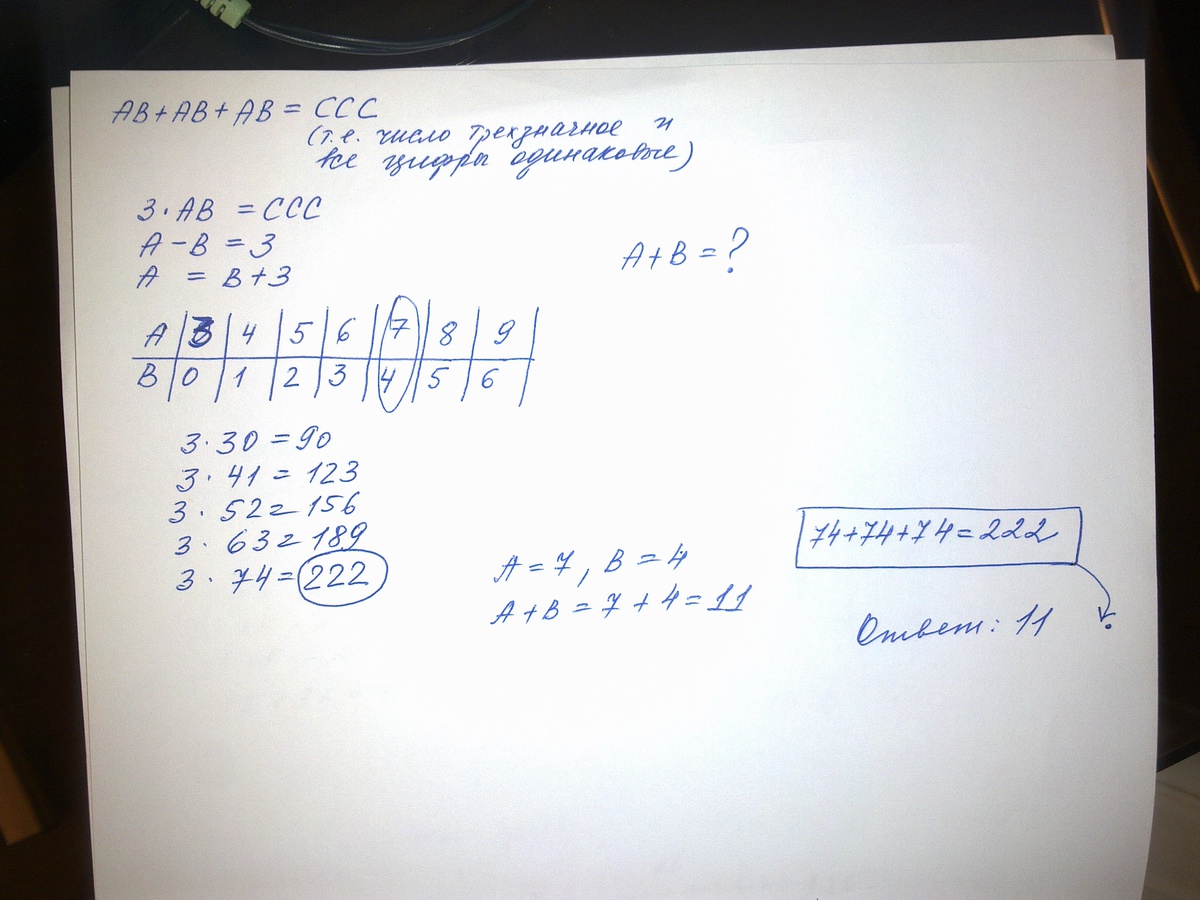 AB+AB+AB = CCC
(т.е. число трехзначное и
все цифры одинаковые)
3·AB = CCC
A-B = 3
A = B+3
A+B=?
A | 3 | 4 | 5 | 6 | 7 | 8 | 9 |
B | 0 | 1 | 2 | 3 | 4 | 5 | 6 |
3·30=90
3·41=123
3·52=156
3·63=189
3·74=222
A=7, B=4
A+B=7+4=11
74+74+74=222
Ответ: 11